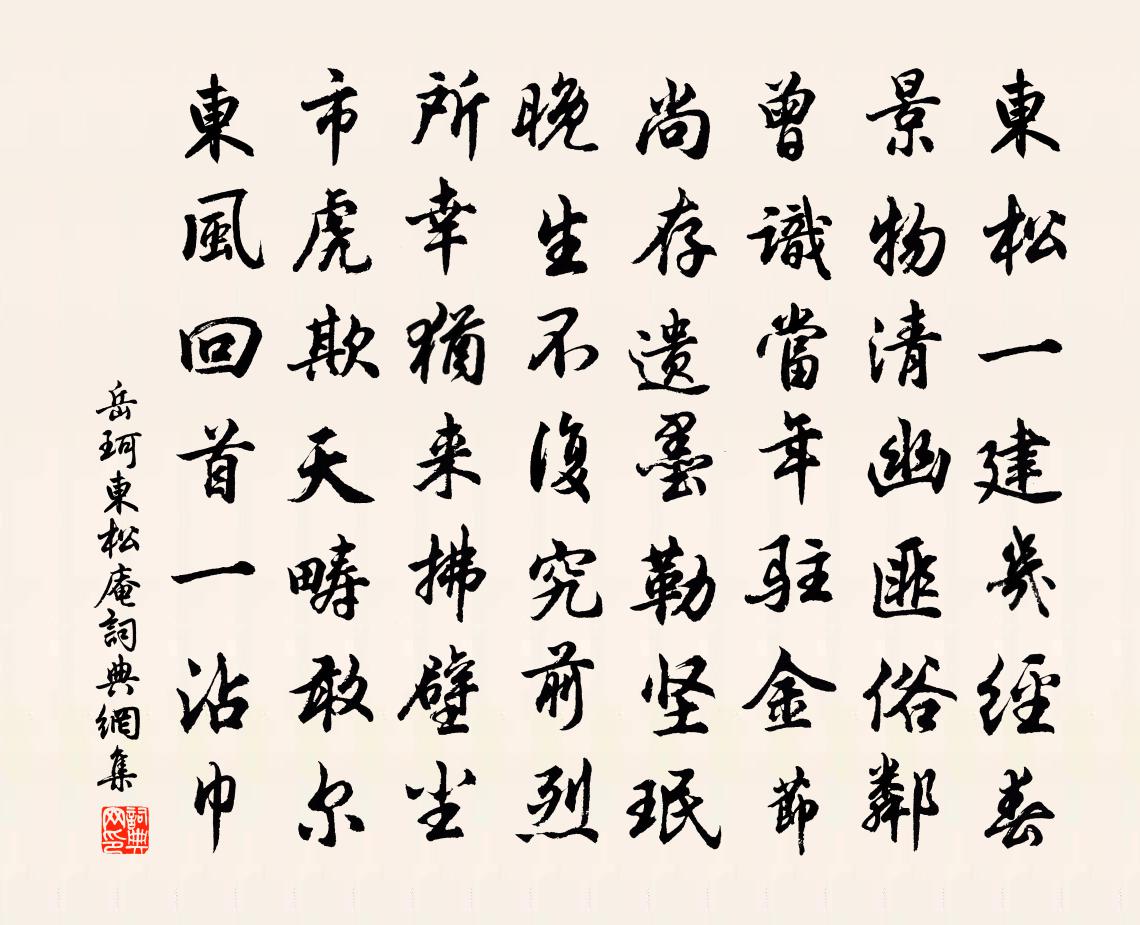 東松一建幾經春
景物清幽匪俗鄰
曾識當年駐金節
尚存遺墨勒坚珉
晚生不復究前烈
所幸猶来拂壁尘
市虎欺天畴敢尔
東風回首一沾巾
岳珂東松庵詞典網集
詞典网印